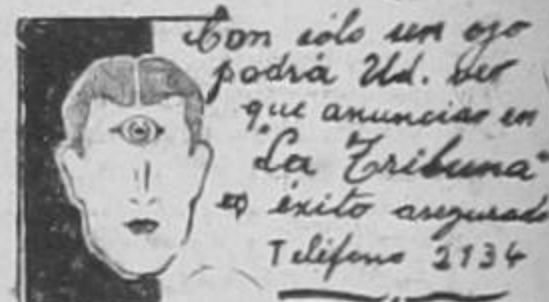 Con sólo un ojo
podrá Ud. ver
que anunciar en
"La Tribuna"
es éxito asegurado
Teléfono 2134